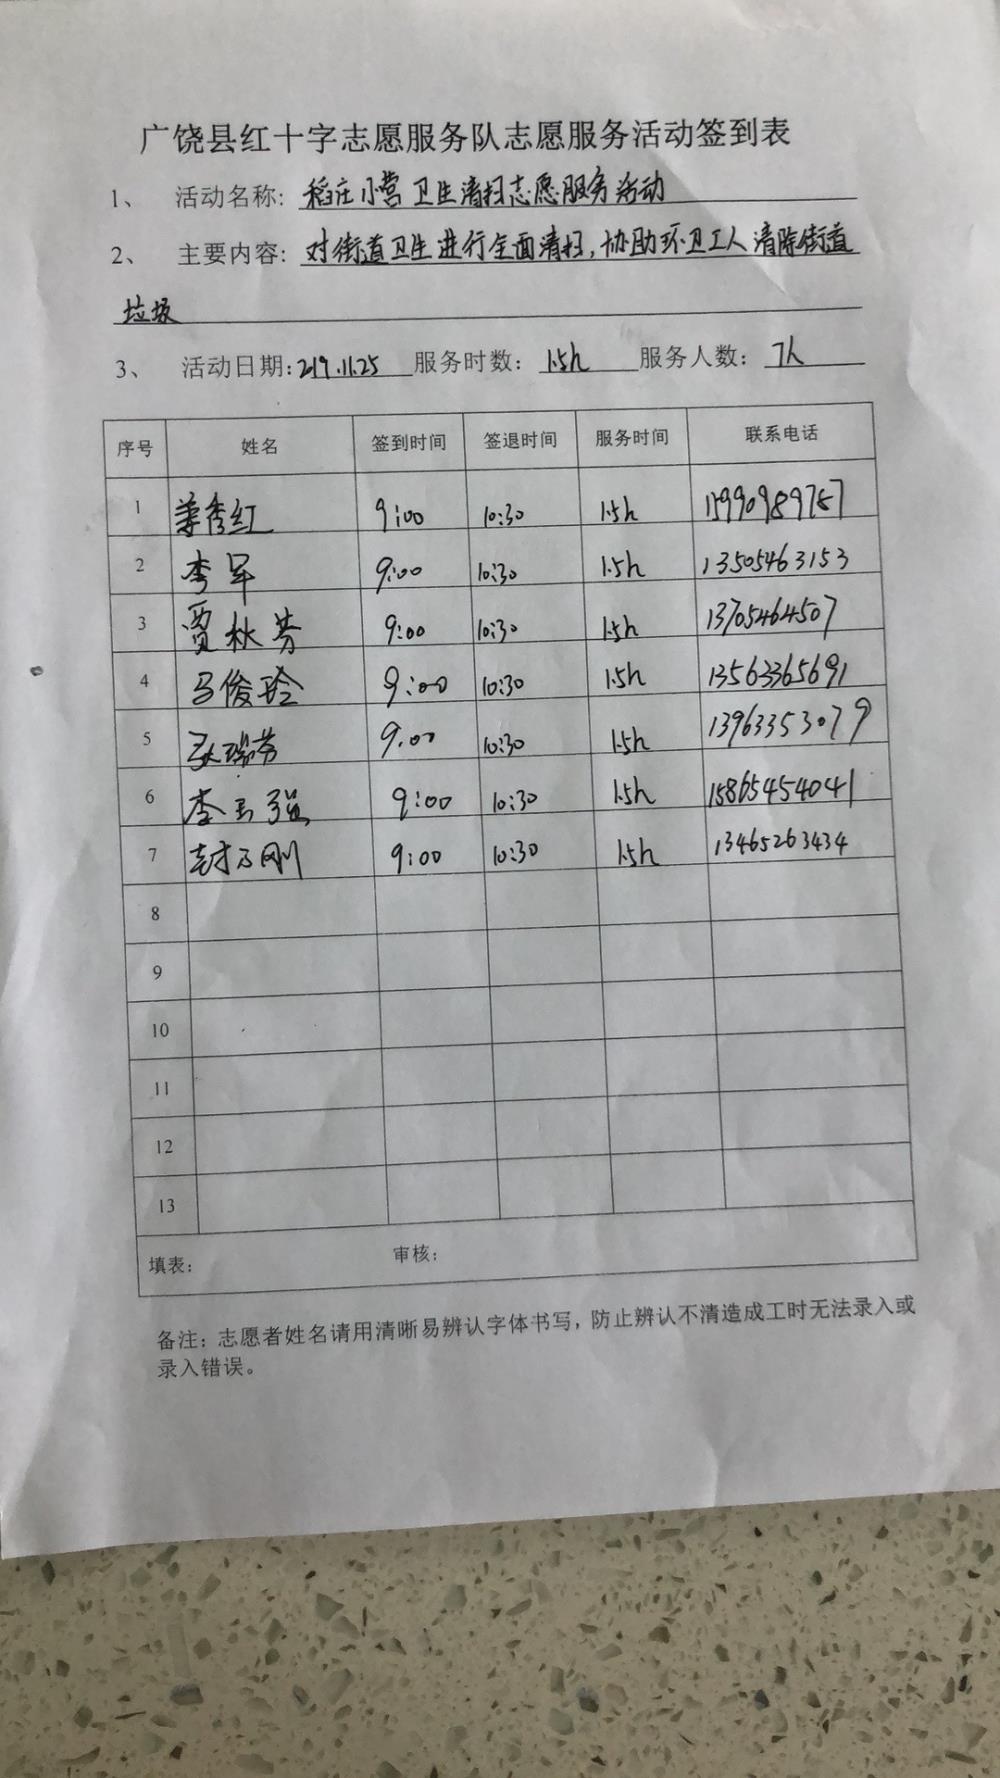 广饶县红十字志愿服务队志愿服务活动签到表
1、 活动名称: 稻庄小营卫生清扫志愿服务活动
2、 主要内容: 对街道卫生进行全面清扫,协助环卫工人清除街道
垃圾
3、 活动日期: 219.11.25 服务时数: 1.5h 服务人数: 7人
序号 姓名 签到时间 签退时间 服务时间 联系电话
1 秀红 9:00 10:30 1.5h 15990989757
2 李军 9:00 10:30 1.5h 13505463153
3 贾秋芳 9:00 10:30 1.5h 13705464507
4 马俊玲 9:00 10:30 1.5h 13563365691
5 耿瑞芳 9:00 10:30 1.5h 13963353079
6 李玉强 9:00 10:30 1.5h 15865454041
7 封万刚 9:00 10:30 1.5h 13465263434
8
9
10
11
12
13
填表: 审核:
备注:志愿者姓名请用清晰易辨认字体书写,防止辨认不清造成工时无法录入或
录入错误。